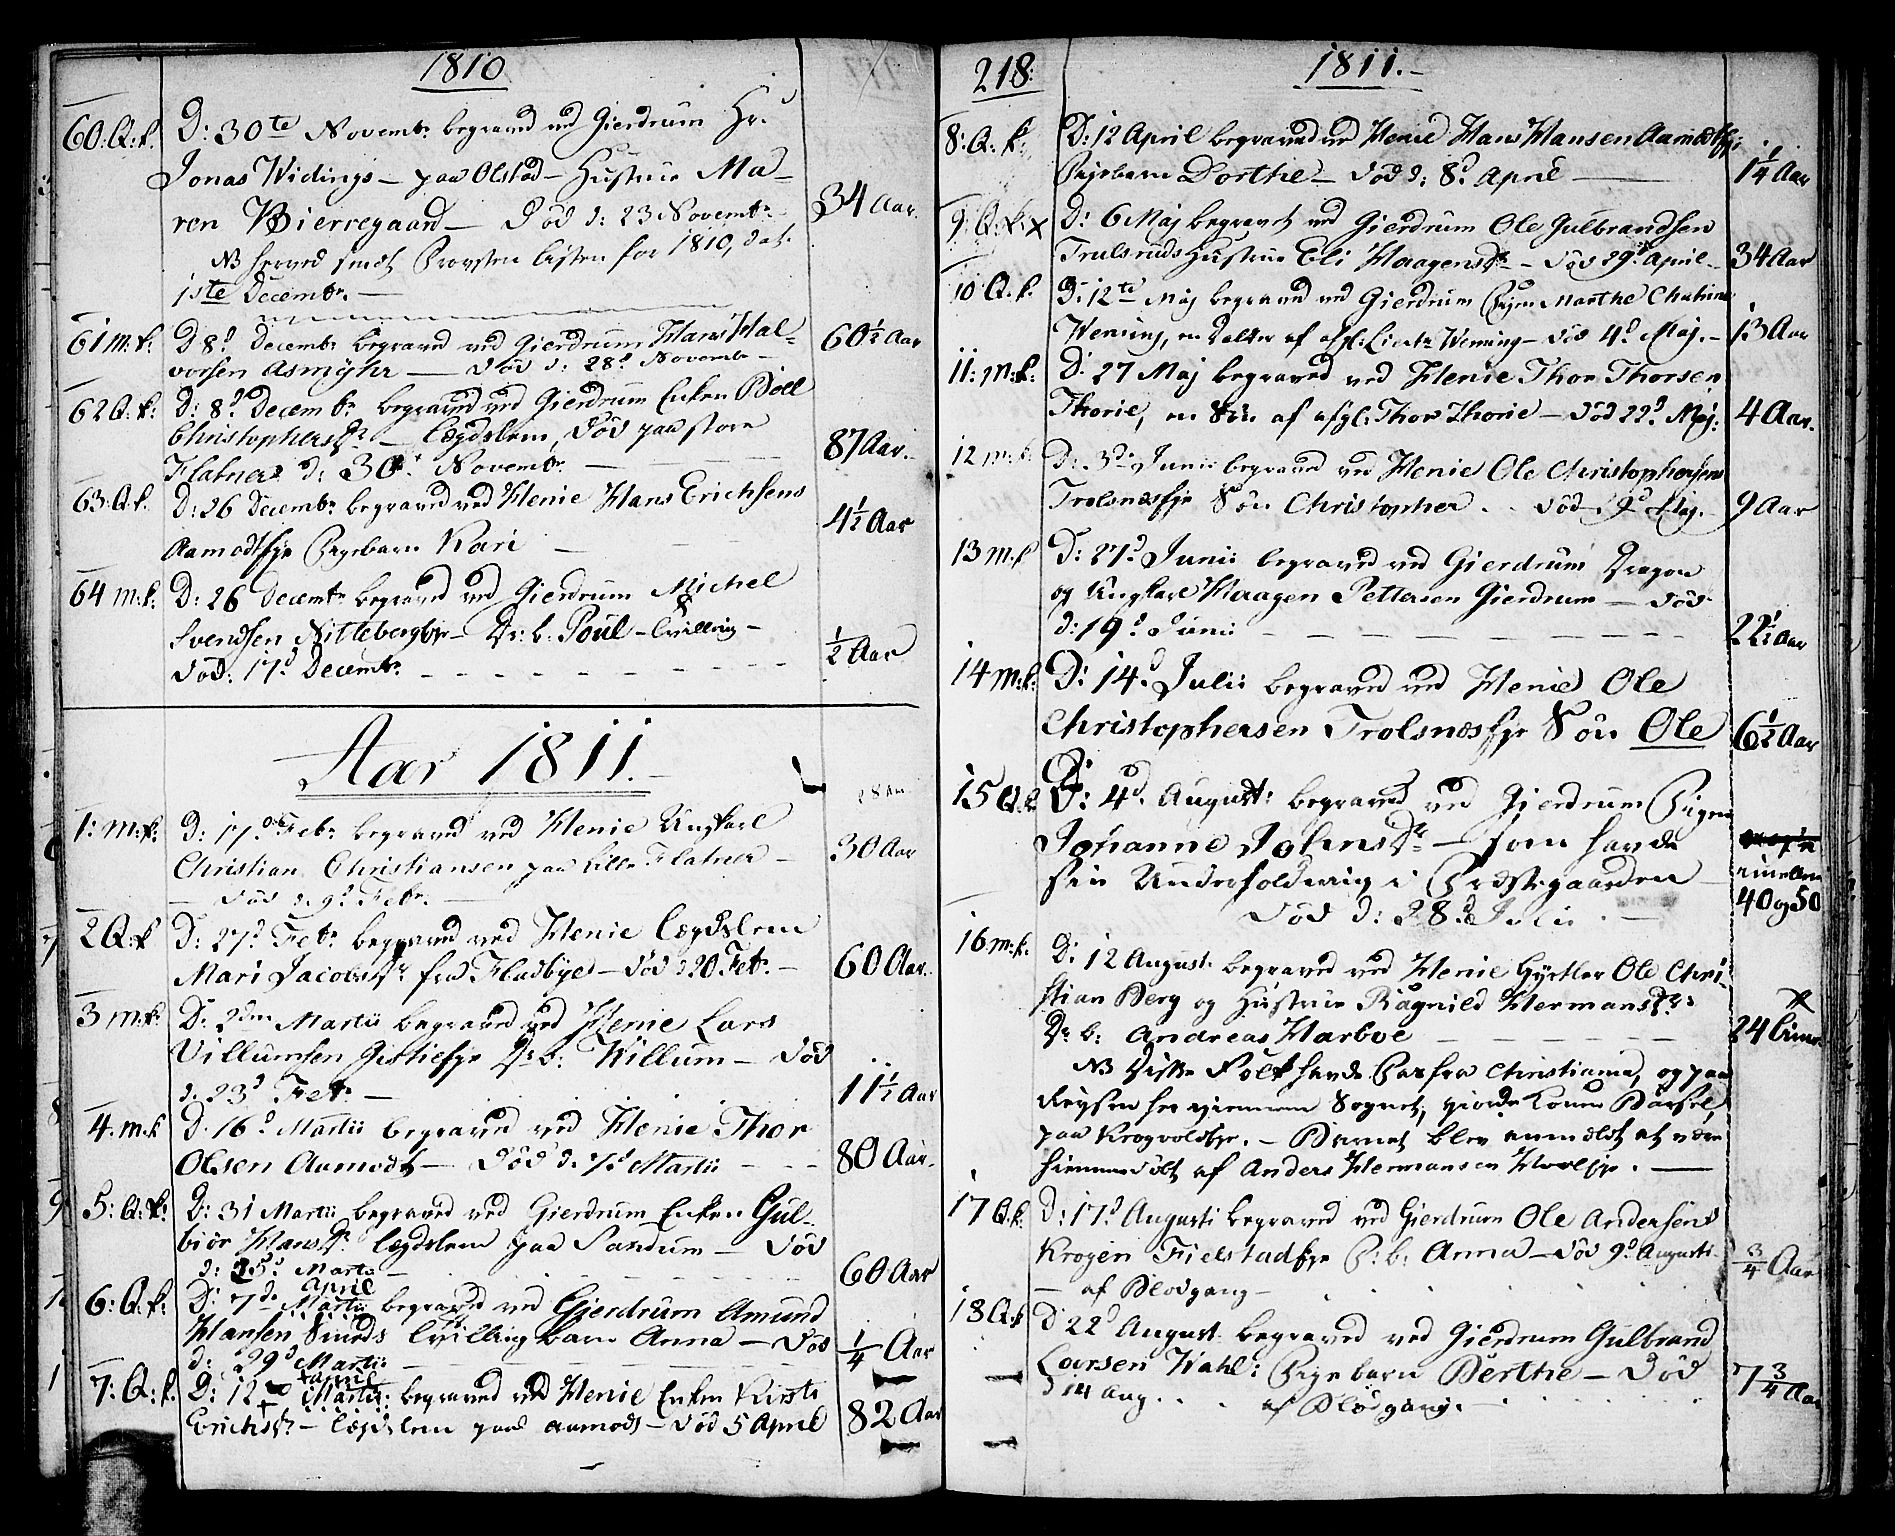 1810
60. Q: k.
D: 30te Novembr begraved ved Gierdrum Hr.
Jonas Widings – paa Olstad – Hustrue Ma-
ren Bierregaard – Död d: 23 Novembr
34 Aar.
NB herved sendt Provsten listen for 1810, dat.
1ste Decembr. –
61 m: k:
D 8d Decembr begraved ved Gierdrum Hans Hal-
vorsen Asmyhr – Död d: 28d Novembr –
60½ Aar
62 Q: k:
D: 8d Decembr begraved ved Gierdrum Enken Boel
Christophersdr – Lægdslem, Död paa store
Flatner d: 30 Novembr –
87 Aar.
63: Q. k.
D: 26 Decembr begraved ved Henie Hans Erichsens
Aamodteje Pigebarn Kari –
4½ Aar
64 m: k:
D: 26 Decembr begraved ved Gierdrum Michel
Svendsen Nittebergeje Dr: b: Poul – Tvilling –
Död: 17d Decembr
½ Aar
Aar 1811. –
1: m: k:
D: 17de Febr begraved ved Henie Ungkarl
Christian Christiansen paa lille Flatner –
– Död d. 9d Febr. –
30 Aar
2 Q: k
D: 27d Febr begraved ved Henie Lægdslem
Mari Jacobsdr fra Fladbye – Död d 20 Febr. –
60 Aar.
3 m: k:
D: 2den Martii begraved ved Henie Lars
Villumsen eje Dr: b: Willum – Död
d. 23d Febr –
11½ Aar
4. m. k
D. 16d Martii begraved ved Henie Thor
Olsen Aamodt – Död d. 7d Martii
80 Aar.
5: Q: k:
D: 31 Martii begraved ved Gierdrum Enken Gul-
biör Hansdr Lægdslem paa – Död
d: 25d Martii –
60 Aar
6: Q: k:
April
D: 7de Martii begraved ved Gierdrum Amund
Hansen Tvilling barn Anna – Död
d: 29d Martii –
¼ Aar
7: Q: k.
April
D: 12 Martii: begraved ved Henie Enken Kirsti
Erichsdr – Lægdslem paa Aamodt – Död 5 April
82 Aar
218:
1811. –
8: Q. k:
D: 12 April begraved ved Henie Hans Hansen Aamodteje
Pigebarn Dorthe – Död d: 8d April
1¼ Aar
9: Q: k: X
D: 6 Maj begravet ved Gierdrum Ole Gulbrandsen
Trulsruds Hustrue Eli Haagensdr – Död 29d April –
34 Aar
10 Q. k.
D: 12te Maj begraved ved Gierdrum Pigen Marthe Chatrine
Wenning, en Datter af afgl: Lieutn Wenning – Död 4d Maj. –
13 Aar
11: m: k:
D: 27 Maj begraved ved Henie Thor Thorsen
Thorie, en Sön af afgl: Thor Thorie – Död 22d Maj:
4 Aar.
12 m: k:
D: 3de Junii begraved ved Henie Ole Christophersens
Trolsnæseje Sön Christopher. . Död Maj. –
9 Aar
13 m. k
D: 27d Junii begraved ved Gierdrum Dragon
og Ungkarl Haagen Pettersen Gierdrum – Död
d: 19d Junii
22½ Aar
14 m: k:
D: 14d Julii begraved ved Henie Ole
Christophersen Trolsnæseje Sön Ole
6½ Aar
15 Q. k
D: 4d. August: begraved ved Gierdrum Pigen
Johanne Johnsdr – som havde
sin Underholdning i Præstegaarden –
Död d: 28d Julii. –
imellem
40 og 50
16 m. k.
D: 12 August. begraved ved Henie Gyrtler Ole Chri-
stian Berg og Hustrue Ragnild Hermansdrs
Dr. b: Andreas Harboe
24 Timer
NB Disse Folk havde Pas fra Christiania, og paa
Reysen her giennem Sognet, giorde Konen Barsel,
paa Krogvoldeje. – Barnet blev anmeldt at være
hiemmedöbt af Anders Hermansen eje. –
17 Q. k:
D: 17d Augusti begraved ved Gierdrum Ole Andersens
Krogen Fielstadeje P: b: Anna – Död 9d Augusti –
– af Blodgang –
¾ Aar
18 Q. k
D: 22d August. begraved ved Gierdrum Gulbrand
Larsen Wahl: Pigebarn Berthe – Död
d 14 Aug. . . af Blodgang. –
7¾ Aar